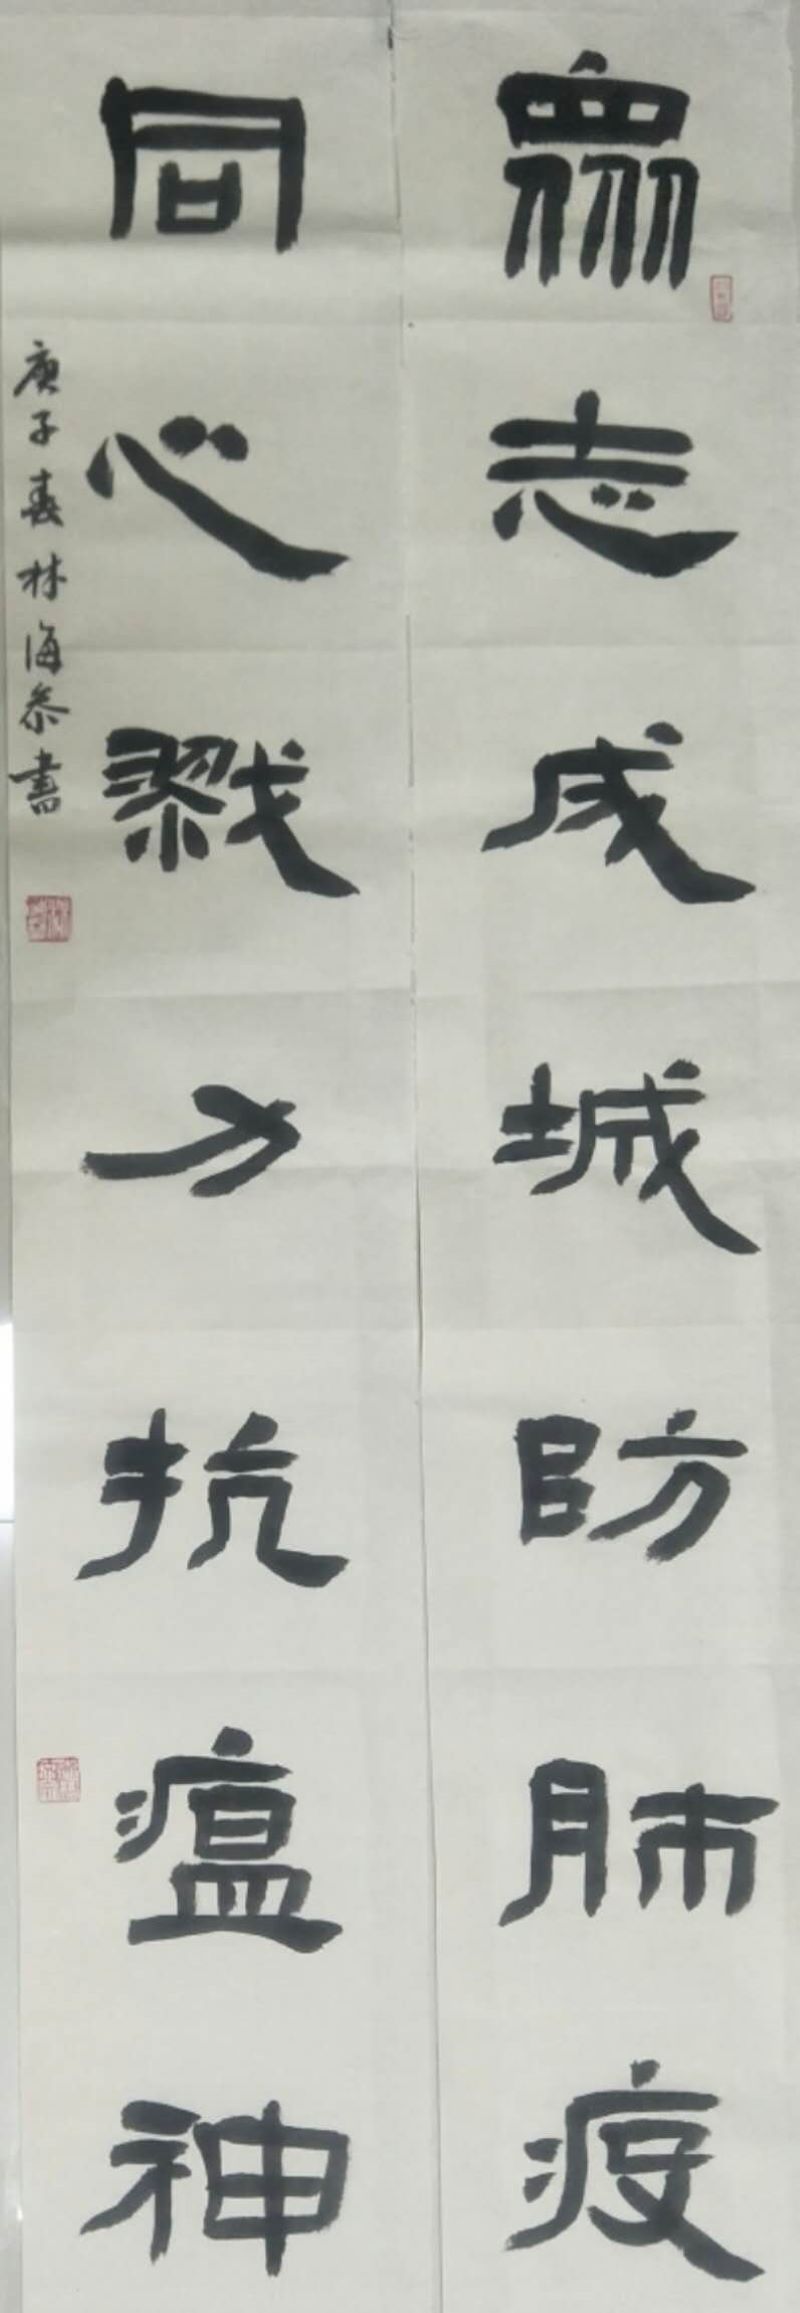 眾志成城防肺疫
同心戮力抗瘟神
庚子春林海泰書